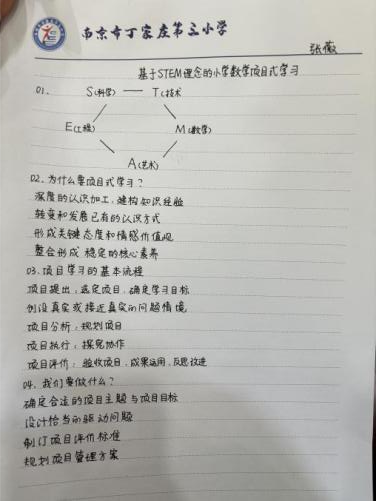 南京市丁家庄第三小学
张薇
基于STEM理念的小学数学项目式学习
01.
S(科学) — T(技术
E(工程) M(数学)
A(艺术)
02.为什么要项目式学习?
深度的认识加工,建构知识经验
转变和发展已有的认识方式
形成关键态度和情感价值观
整合形成稳定的核心素养
03.项目学习的基本流程
项目提出:选定项目,确定学习目标
创设真实或接近真实的问题情境
项目分析:规划项目
项目执行:探究协作
项目评价:验收项目,成果运用,反思改进
04.我们要做什么?
确定合适的项目主题与项目目标
设计恰当的驱动问题
制订项目评价标准
规划项目管理方案